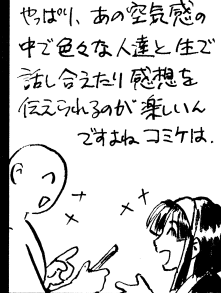 やっぱり、あの空気感の
中で色々な人達と生で
話し合えたり感想を
伝えられるのが楽しいん
ですよね コミケは.